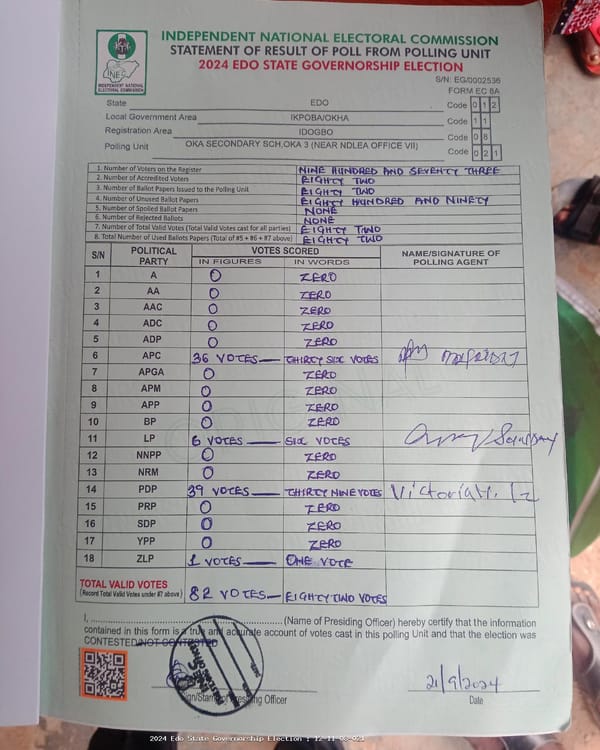 INDEPENDENT NATIONAL ELECTORAL COMMISSION
STATEMENT OF RESULT OF POLL FROM POLLING UNIT
2024 EDO STATE GOVERNORSHIP ELECTION
INEC
INDEPENDENT NATIONAL ELECTORAL COMMISSION
S/N: EG/0002536
FORM EC 8A
State EDO Code 0 1 2
Local Government Area IKPOBA/OKHA Code 1 1
Registration Area IDOGBO Code 0 8
Polling Unit OKA SECONDARY SCH,OKA 3 (NEAR NDLEA OFFICE VII) Code 0 2 1
1. Number of Voters on the Register NINE HUNDRED AND SEVENTY THREE
2. Number of Accredited Voters EIGHTY TWO
3. Number of Ballot Papers Issued to the Polling Unit EIGHTY TWO
4. Number of Unused Ballot Papers EIGHTY HUNDRED AND NINETY
5. Number of Spoiled Ballot Papers NONE
6. Number of Rejected Ballots NONE
7. Number of Total Valid Votes (Total Valid Votes cast for all parties) EIGHTY TWO
8. Total Number of Used Ballots Papers (Total of #5 + #6 + #7 above) EIGHTY TWO
S/N POLITICAL PARTY VOTES SCORED IN FIGURES IN WORDS NAME/SIGNATURE OF POLLING AGENT
1 A 0 ZERO
2 AA 0 ZERO
3 AAC 0 ZERO
4 ADC 0 ZERO
5 ADP 0 ZERO
6 APC 36 VOTES — THIRTY SIX VOTES
7 APGA 0 ZERO
8 APM 0 ZERO
9 APP 0 ZERO
10 BP 0 ZERO
11 LP 6 VOTES — SIX VOTES
12 NNPP 0 ZERO
13 NRM 0 ZERO
14 PDP 39 VOTES — THIRTY NINE VOTES
15 PRP 0 ZERO
16 SDP 0 ZERO
17 YPP 0 ZERO
18 ZLP 1 VOTES — ONE VOTE
TOTAL VALID VOTES
(Record Total Valid Votes under #7 above) 82 VOTES — EIGHTY TWO VOTES
I, (Name of Presiding Officer) hereby certify that the information
contained in this form is a true and accurate account of votes cast in this polling Unit and that the election was
CONTESTED/NOT CONTESTED
21/9/2024
Sign/Stamp of Presiding Officer Date
2024 Edo State Governorship Election : 12-11-08-021